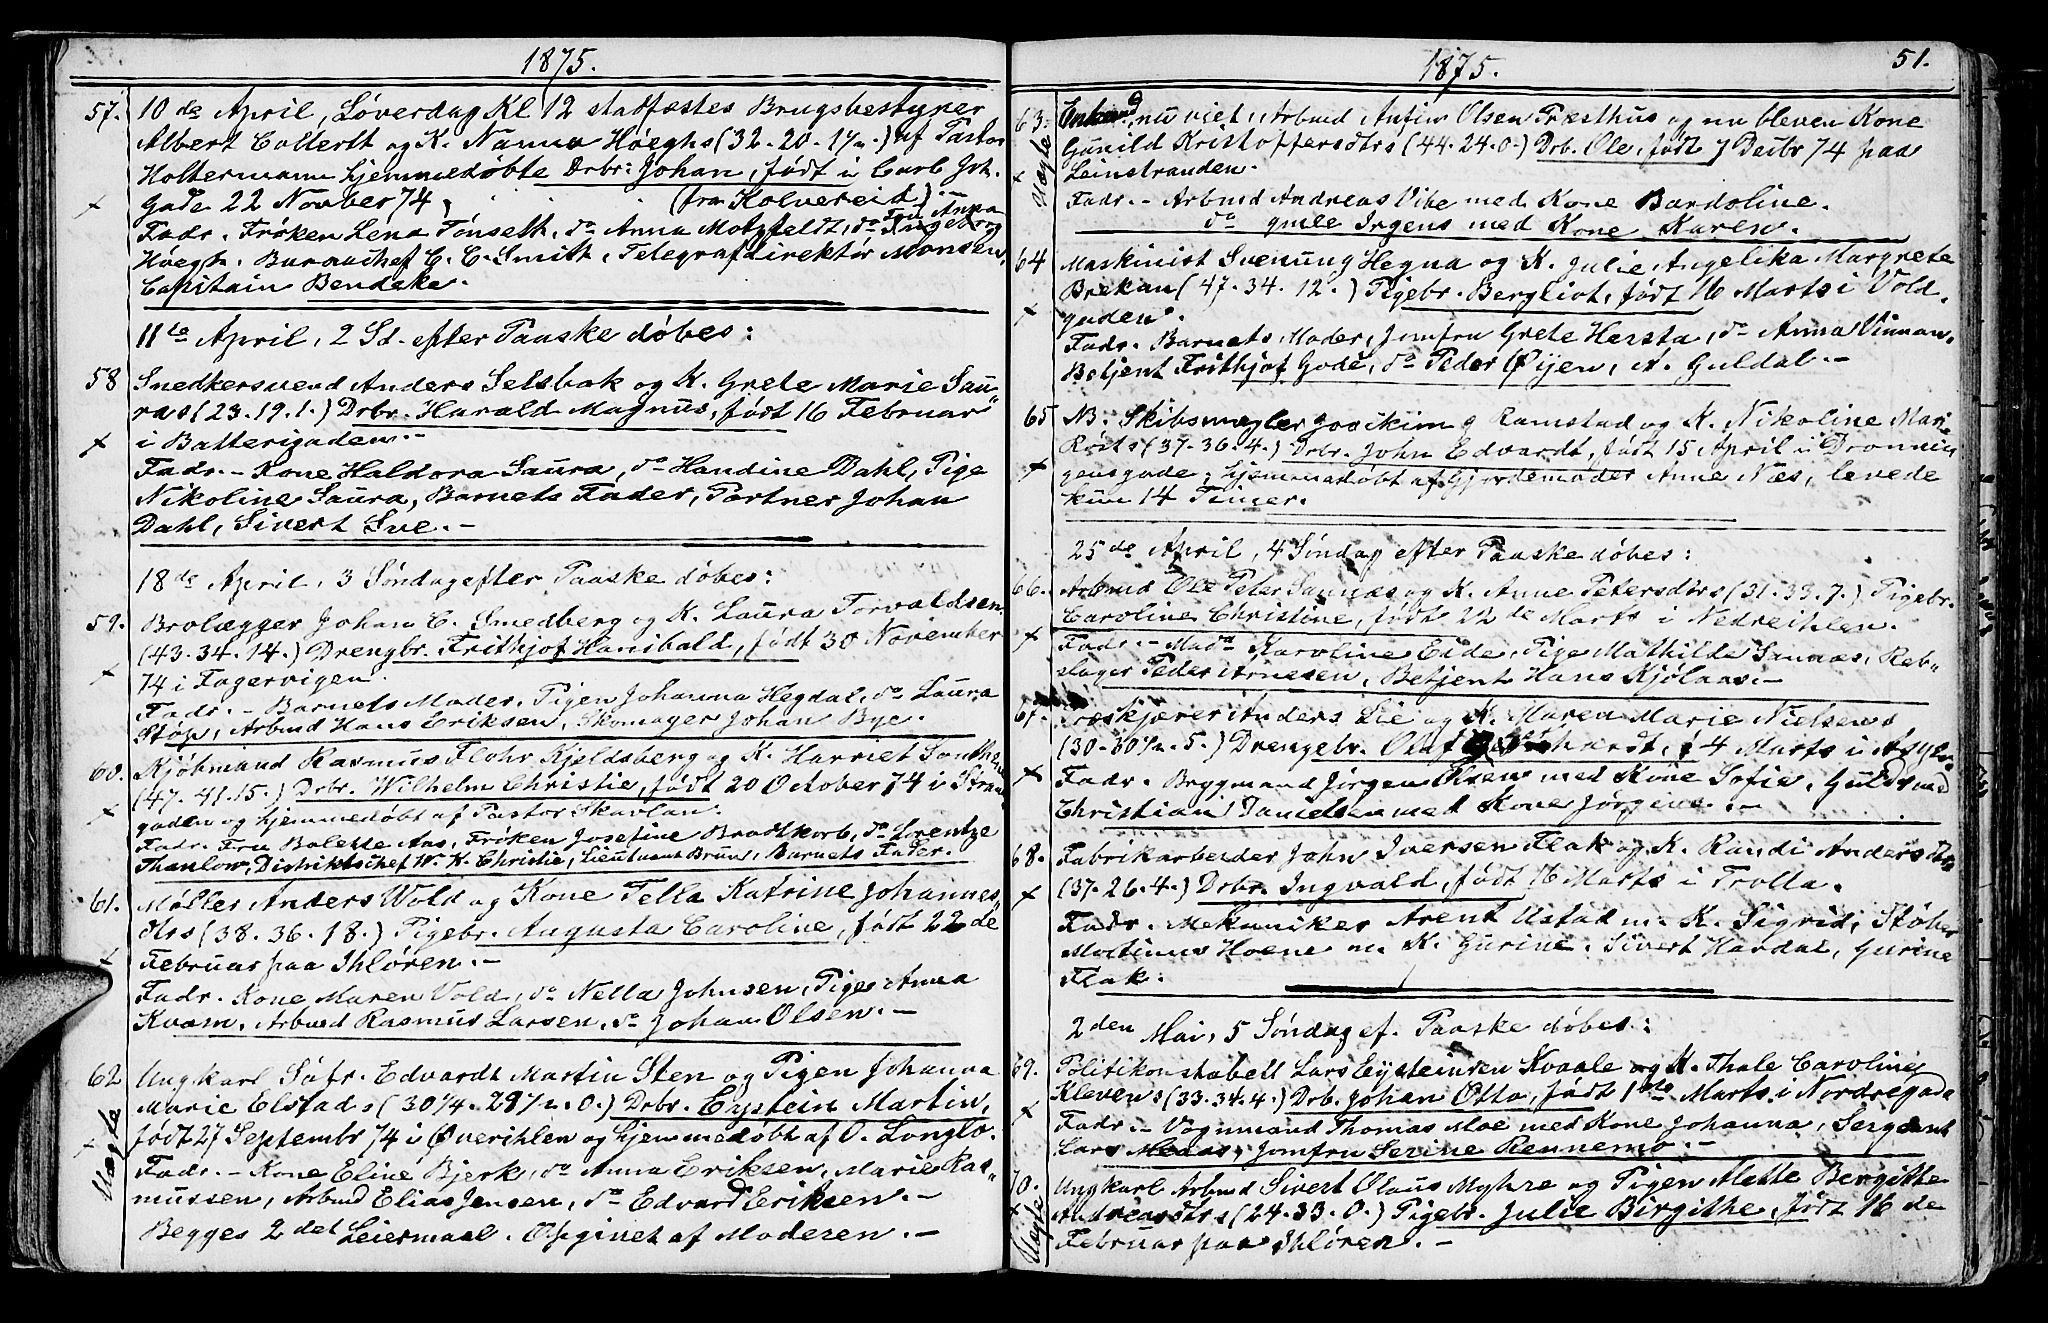 1875.
57. 10de April, Løverdag Kl 12 stadfæstes Brugsbestyrer
Albert Collett og K. Nanna Høeghs (32-20-1½.) af Pastor
Holtermann hjemmedøbte Drbr: Johan, født i Carl Joh.
Gade 22 Novber 74, (fra Kolvereid).
Fadr. Frøken Lena Tønseth, do Anna Motzfeldt, do Fru Anna Ingeborg
Høegh. Bureauchef C. C. Smith, Telegrafdirektør Monsen,
Capitain Bendeke.
11te April, 2 Sd. efter Paaske døbes:
58 Snedkersvend Anders Selsbak og K. Grete Marie Sau„
ras (23.19.1.) Drbr. Harald Magnus, født 16 Februar
i Batterigaden.-
Fadr.- Kone Haldora Saura, do Handine Dahl, Pige
Nikoline Saura, Barnets Fader, Partner Johan
Dahl, Sivert Sve.-
18de April, 3 Søndag efter Paaske døbes:
59. Brolægger Johan C. Smedberg og K. Laura Torvaldsen
(43.34.14.) Drengbr. Frithjof Hanibald, født 30 November
74 i Fagervigen.
Fadr.- Barnets Moder, Pigen Johanna Hegdal, do Laura
Støp, Arbmd Hans Eriksen, Skomager Johan Bye.
60. Kjøbmand Rasmus Flohr Kjeldsberg og K. Harriet
(47.41.15.) Drbr. Wilhelm Christie, født 20 October 74 i Stran
gaden og hjemmedøbt af Pastor Skavlan.
Fadr. Fru Bolette Aas, Frøken Josefine Brodtkorb, do Lorentze
Thaulow, Distriktschef W. K. Christie, Lieutnant Bruun, Barnets Fader.
61. Møller Anders Wold og Kone Pella Katrine Johannes„
dtrs (38.36.18.) Pigebr. Augusta Caroline, født 22de
Februar paa Ihløren.-
Fadr. Kone Maren Vold, do Nella Johnsen, Pige Anna
Kvam, Arbmd Rasmus Larsen, do Johan Olsen.-
62 Ungkarl Søfr. Edvardt Martin Sten og Pigen Johanna
Marie Elstads (30¼.29½.0.) Drbr. Eystein Martin,
født 27 Septembr 74 i Øverihlen og hjemmedøbt af O. Longlo.
Uægte Fadr.- Kone Eline Bjerk, do Anna Eriksen, Marie Ras„
mussen, Arbmd Elias Jensen, do Edvard Eriksen.-
Begges 2det Leiermaal. Opgivet af Moderen.-
1875. 51.
63. Enkemd nu viet, Arbmd Anfin Olsen Præsthus og nu bleven Kone
Gunild Kristoffersdtrs (44.24.0.) Drb. Ole, født 7 Decbr 74 paa
Uægte Leinstranden.
Fadr.- Arbmd Andreas Vike med Kone Bardoline.
do gmle Irgens med Kone Karen.
64 Maskinist Svenung Hegna og K. Julie Angelika Margrete
Brekan (47.34.12.) Pigebr. Bergliot, født 16 Marts i Vold„
gaden.
Fadr. Barnets Moder, Jomfru Grete Hersta, do Anna Vinnan,
Betjent Frithjof Gode, do Peder Øyen, A. Guldal.-
65 NB. Skibsmægler Joakim g Ramstad og K. Nikoline Mari
Røsts (37.36.4.) Drbr. John Edvardt, født 15 April i Dronnin
gensgade, hjemmedøbt af Gjordemoder Anne Næs, levede
kun 14 Timer.
25de April, 4 Søndag efter Paaske døbes:
66. Arbmd Ole Peter Sannæs og K. Anne Petersdtrs (31.33.7.) Pigebr.
Caroline Christine, født 22de Marts i Nedreihlen.
Fadr.- Madm Karoline Eide, Pige Mathilde Sannæs, Reb„
slager Peder Arnesen, Betjent Hans Kjølaas.-
67. Træskjærer Anders Lie og K. Maren Marie Nielsens
(30.30½.5.) Drengebr. Olaf f 4 Marts i Asylg.
Fadr. Brygmand Jørgen Olsen med Kone Sofie, Guldsmed
Christian Danielsen med Kone Jørgine.-
68. Fabrikarbeider John Iversen Flak og K. Randi Anders dtrs
(37.26.4.) Drbr. Ingvald, født 16 Marts i Trolla.
Fadr. Mekaniker Arent Ustad m. K. Sigrid, Støber
Mortinus Hoene m. K. Gurine. Sivert Hardal, Gurine
Flak.
2den Mai, 5 Søndag ef. Paaske døbes:
69. Politikonstabell Lars Eysteinsen Kvaale og K. Thale Caroline
Klevens (33.34.4.) Drb. Johan Otto, født 1ste Marts i Nordregade
Fadr.- Vognmand Thomas Moe med Kone Johanna, Sergeant
Lars Moaas, Jomfru Serine Rennemo.-
70. Ungkarl Arbmd Sivert Olaus Myhre og Pigen Mette Bergitte
Andreasdtrs (24.33.0.) Pigebr. Julie Birgithe, født 16de
Uægte Februar paa Ihløren.-